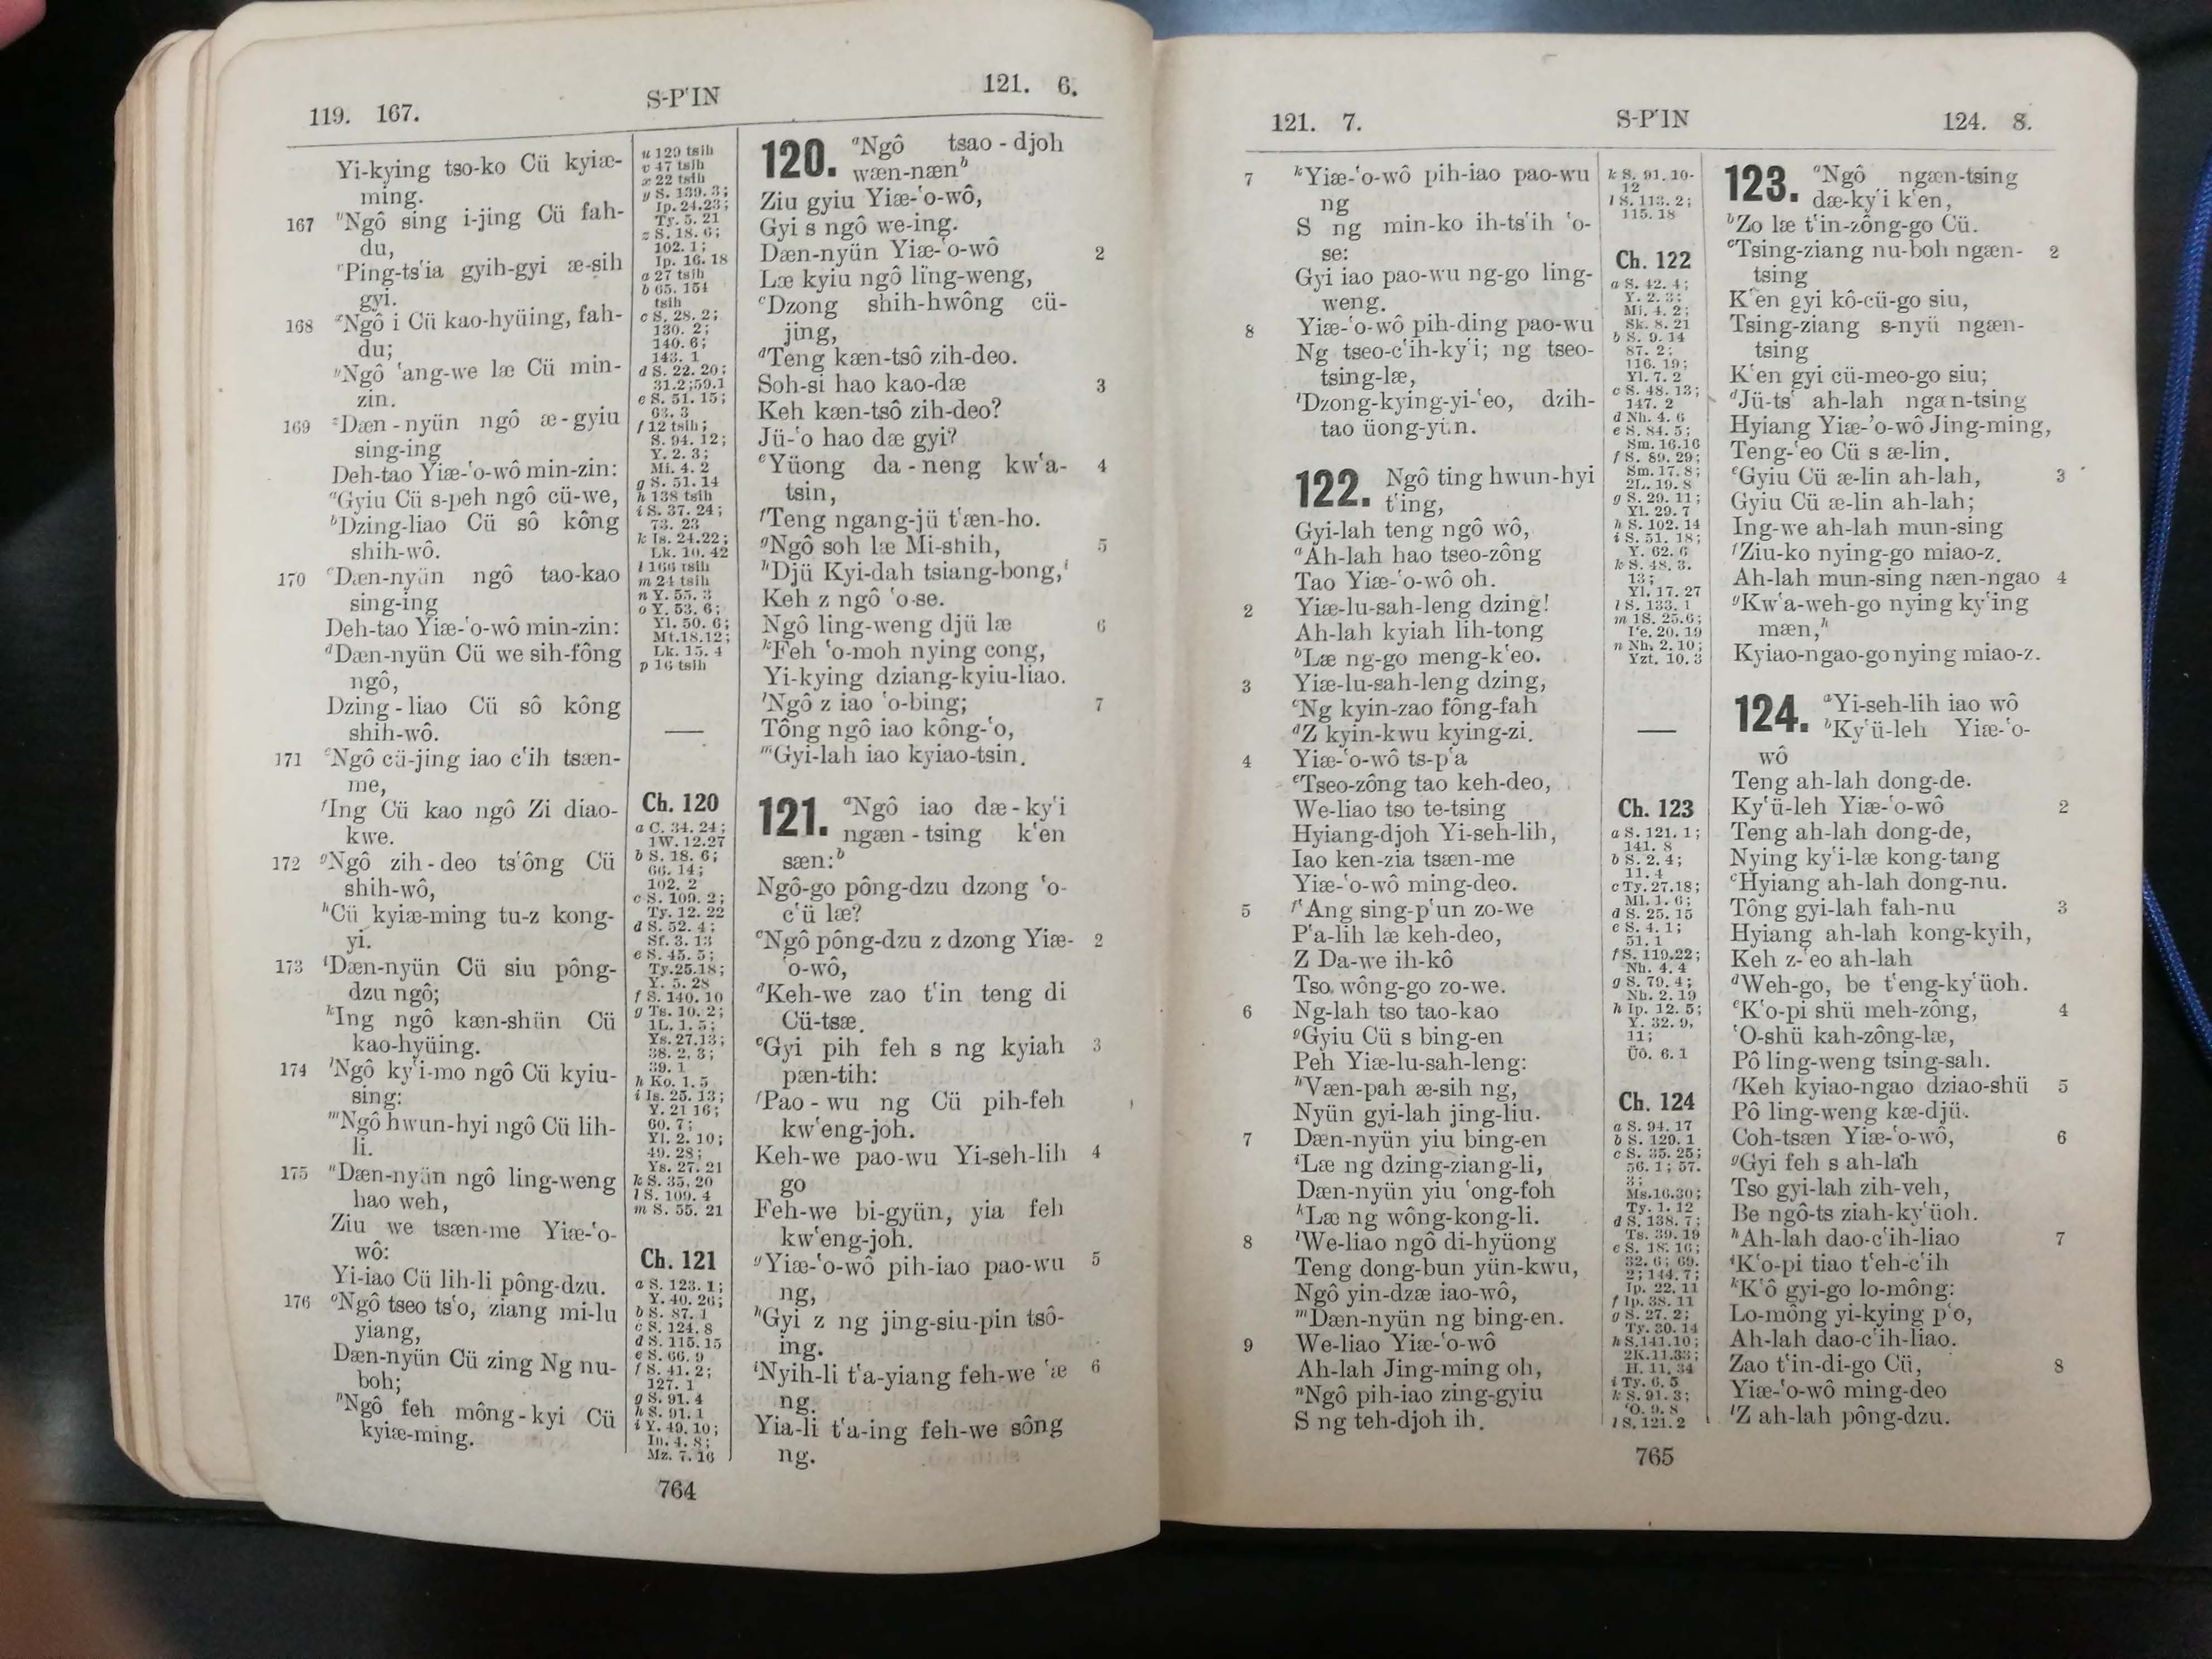 119. 167.
S-PʽIN
121. 6.
Yi-kying tso-ko Cü kyiæ-
ming.
167 ᵘNgô sing i-jing Cü fah-
du,
ᵛPing-tsʽia gyih-gyi æ-sih
gyi.
168 ˣNgô i Cü kao-hyüing, fah-
du;
ʸNgô ʽang-we læ Cü min-
zin.
169 ᶻDæn-nyün ngô æ-gyiu
sing-ing
Deh-tao Yiæ-ʽo-wô min-zin:
ᵃGyiu Cü s-peh ngô cü-we,
ᵇDzing-liao Cü sô kông
shih-wô.
170 ᶜDæn-nyün ngô tao-kao
sing-ing
Deh-tao Yiæ-ʽo-wô min-zin:
ᵈDæn-nyün Cü we sih-fông
ngô,
Dzing-liao Cü sô kông
shih-wô.
171 ᵉNgô cü-jing iao cʽih tsæn-
me,
ᶠIng Cü kao ngô Zi diao-
kwe.
172 ᵍNgô zih-deo tsʽông Cü
shih-wô,
ʰCü kyiæ-ming tu-z kong-
yi.
173 ⁱDæn-nyün Cü siu pông-
dzu ngô;
ᵏIng ngô kæn-shün Cü
kao-hyüing.
174 ˡNgô kyʽi-mo ngô Cü kyiu-
sing:
ᵐNgô hwun-hyi ngô Cü lih-
li.
175 ⁿDæn-nyün ngô ling-weng
hao weh,
Ziu we tsæn-me Yiæ-ʽo-
wô:
Yi-iao Cü lih-li pông-dzu.
176 ᵒNgô tseo tsʽo, ziang mi-lu
yiang,
Dæn-nyün Cü zing Ng nu-
boh;
ᵖNgô feh mông-kyi Cü
kyiæ-ming.
u 129 tsih
v 47 tsih
x 22 tsih
y S. 139. 3;
Ip. 24.23;
Ty. 5. 21
z S. 18. 6;
102. 1;
Ip. 16. 18
a 27 tsih
b 65. 154
tsih
c S. 28. 2;
130. 2;
140. 6;
143. 1
d S. 22. 20;
31.2;59.1
e S. 51. 15;
63. 3
f 12 tsih;
S. 94. 12;
Y. 2. 3;
Mi. 4. 2
g S. 51. 14
h 138 tsih
i S. 37. 24;
73. 23
k Is. 24.22;
Lk. 10. 42
l 166 tsih
m 24 tsih
n Y. 55. 3
o Y. 53. 6;
Yl. 50. 6;
Mt.18.12;
Lk. 15. 4
p 16 tsih
Ch. 120
a C. 34. 24;
1W. 12.27
b S. 18. 6;
66. 14;
102. 2
c S. 109. 2;
Ty. 12. 22
d S. 52. 4;
Sf. 3. 13
e S. 45. 5;
Ty.25.18;
Y. 5. 28
f S. 140. 10
g Ts. 10. 2;
1L. 1. 5;
Ys. 27.13;
38. 2, 3;
39. 1
h Ko. 1. 5
i Is. 25. 13;
Y. 21 16;
60. 7;
Yl. 2. 10;
49. 28;
Ys. 27. 21
k S. 35. 20
l S. 109. 4
m S. 55. 21
Ch. 121
a S. 123. 1;
Y. 40. 26;
b S. 87. 1
c S. 124. 8
d S. 115. 15
e S. 66. 9
f S. 41. 2;
127. 1
g S. 91. 4
h S. 91. 1
i Y. 49. 10;
In. 4. 8;
Mz. 7. 16
120. ᵃNgô tsao-djoh
wæn-nænᵇ
Ziu gyiu Yiæ-ʽo-wô,
Gyi s ngô we-ing.
Dæn-nyün Yiæ-ʽo-wô 2
Læ kyiu ngô ling-weng,
ᶜDzong shih-hwông cü-
jing,
ᵈTeng kæn-tsô zih-deo.
Soh-si hao kao-dæ 3
Keh kæn-tsô zih-deo?
Jü-ʽo hao dæ gyi?
ᵉYüong da-neng kwʽa- 4
tsin,
ᶠTeng ngang-jü tʽæn-ho.
ᵍNgô soh læ Mi-shih, 5
ʰDjü Kyi-dah tsiang-bong,ⁱ
Keh z ngô ʽo-se.
Ngô ling-weng djü læ 6
ᵏFeh ʽo-moh nying cong,
Yi-kying dziang-kyiu-liao.
ˡNgô z iao ʽo-bing; 7
Tông ngô iao kông-ʽo,
ᵐGyi-lah iao kyiao-tsin.
121. ᵃNgô iao dæ-kyʽi
ngæn-tsing kʽen
sæn:ᵇ
Ngô-go pông-dzu dzong ʽo-
cʽü læ?
ᶜNgô pông-dzu z dzong Yiæ- 2
ʽo-wô,
ᵈKeh-we zao tʽin teng di
Cü-tsæ.
ᵉGyi pih feh s ng kyiah 3
pæn-tih:
ᶠPao-wu ng Cü pih-feh
kwʽeng-joh.
Keh-we pao-wu Yi-seh-lih 4
go
Feh-we bi-gyün, yia feh
kwʽeng-joh.
ᵍYiæ-ʽo-wô pih-iao pao-wu 5
ng,
ʰGyi z ng jing-siu-pin tsô-
ing.
ⁱNyih-li tʽa-yiang feh-we ʽæ 6
ng.
Yia-li tʽa-ing feh-we sông
ng.
764
121. 7.
S-PʽIN
124. 8.
7 ᵏYiæ-ʽo-wô pih-iao pao-wu
ng
S ng min-ko ih-tsʽih ʽo-
se:
Gyi iao pao-wu ng-go ling-
weng.
8 Yiæ-ʽo-wô pih-ding pao-wu
Ng tseo-cʽih-kyʽi; ng tseo-
tsing-læ,
ˡDzong-kying-yi-ʽeo, dzih-
tao üong-yün.
122. Ngô ting hwun-hyi
tʽing,
Gyi-lah teng ngô wô,
ᵃAh-lah hao tseo-zông
Tao Yiæ-ʽo-wô oh.
2 Yiæ-lu-sah-leng dzing!
Ah-lah kyiah lih-tong
ᵇLæ ng-go meng-kʽeo.
3 Yiæ-lu-sah-leng dzing,
ᶜNg kyin-zao fông-fah
ᵈZ kyin-kwu kying-zi.
4 Yiæ-ʽo-wô ts-pʽa
ᵉTseo-zông tao keh-deo,
We-liao tso te-tsing
Hyiang-djoh Yi-seh-lih,
Iao ken-zia tsæn-me
Yiæ-ʽo-wô ming-deo.
5 ᶠʽAng sing-pʽun zo-we
Pʽa-lih læ keh-deo,
Z Da-we ih-kô
Tso wông-go zo-we.
6 Ng-lah tso tao-kao
ᵍGyiu Cü s bing-en
Peh Yiæ-lu-sah-leng:
ʰVæn-pah æ-sih ng,
Nyün gyi-lah jing-liu.
7 Dæn-nyün yiu bing-en
ⁱLæ ng dzing-ziang-li,
Dæn-nyün yiu ʽong-foh
ᵏLæ ng wông-kong-li.
8 ˡWe-liao ngô di-hyüong
Teng dong-bun yün-kwu,
Ngô yin-dzæ iao-wô,
ᵐDæn-nyün ng bing-en.
9 We-liao Yiæ-ʽo-wô
Ah-lah Jing-ming oh,
ⁿNgô pih-iao zing-gyiu
S ng teh-djoh ih.
k S. 91. 10-
12
l S. 113. 2;
115. 18
Ch. 122
a S. 42. 4;
Y. 2. 3;
Mi. 4. 2;
Sk. 8. 21
b S. 9. 14
87. 2;
116. 19;
Yl. 7. 2
c S. 48. 13;
147. 2
d Nh. 4. 6
e S. 84. 5;
Sm. 16.16
f S. 89. 29;
Sm. 17. 8;
2L. 19. 8
g S. 29. 11;
Yl. 29. 7
h S. 102. 14
i S. 51. 18;
Y. 62. 6
k S. 48. 3.
13;
Yl. 17. 27
l S. 133. 1
m 1S. 25.6;
Pe. 20. 19
n Nh. 2. 10;
Yzt. 10. 3
Ch. 123
a S. 121. 1;
141. 8
b S. 2. 4;
11. 4
c Ty. 27.18;
Ml. 1. 6;
d S. 25. 15
e S. 4. 1;
51. 1
f S. 119.22;
Nh. 4. 4
g S. 79. 4;
Nh. 2. 19
h Ip. 12. 5;
Y. 32. 9,
11;
Üô. 6. 1
Ch. 124
a S. 94. 17
b S. 129. 1
c S. 35. 25;
56. 1; 57.
3;
Ms.16.30;
Ty. 1. 12
d S. 138. 7;
Ts. 39. 19
e S. 18. 16;
32. 6; 69.
2; 144. 7;
Ip. 22. 11
f Ip. 38. 11
g S. 27. 2;
Ty. 30. 14
h S.141.10;
2K.11.33;
H. 11. 34
i Ty. 6. 5
k S. 91. 3;
ʽO. 9. 8
l S. 121. 2
123. ᵃNgô ngæn-tsing
dæ-kyʽi kʽen,
ᵇZo læ tʽin-zông-go Cü.
ᶜTsing-ziang nu-boh ngæn- 2
tsing
Kʽen gyi kô-cü-go siu,
Tsing-ziang s-nyü ngæn-
tsing
Kʽen gyi cü-meo-go siu;
ᵈJü-tsʽ ah-lah ngæn-tsing
Hyiang Yiæ-ʽo-wô Jing-ming,
Teng-ʽeo Cü s æ-lin.
ᵉGyiu Cü æ-lin ah-lah, 3
Gyiu Cü æ-lin ah-lah;
Ing-we ah-lah mun-sing
ᶠZiu-ko nying-go miao-z.
Ah-lah mun-sing næn-ngao 4
ᵍKwʽa-weh-go nying kyʽing
mæn,ʰ
Kyiao-ngao-go nying miao-z.
124. ᵃYi-seh-lih iao wô
ᵇKyʽü-leh Yiæ-ʽo-
wô
Teng ah-lah dong-de.
Kyʽü-leh Yiæ-ʽo-wô 2
Teng ah-lah dong-de,
Nying kyʽi-læ kong-tang
ᶜHyiang ah-lah dong-nu.
Tông gyi-lah fah-nu 3
Hyiang ah-lah kong-kyih,
Keh z-ʽeo ah-lah
ᵈWeh-go, be tʽeng-kyʽüoh.
ᵉKʽo-pi shü meh-zông, 4
ʽO-shü kah-zông-læ,
Pô ling-weng tsing-sah.
ᶠKeh kyiao-ngao dziao-shü 5
Pô ling-weng kæ-djü.
Coh-tsæn Yiæ-ʽo-wô, 6
ᵍGyi feh s ah-lah
Tso gyi-lah zih-veh,
Be ngô-ts ziah-kyʽüoh.
ʰAh-lah dao-cʽih-liao 7
ⁱKʽo-pi tiao tʽeh-cʽih
ᵏKʽô gyi-go lo-mông:
Lo-mông yi-kying pʽo,
Ah-lah dao-cʽih-liao.
Zao tʽin-di-go Cü, 8
Yiæ-ʽo-wô ming-deo
ˡZ ah-lah pông-dzu.
765